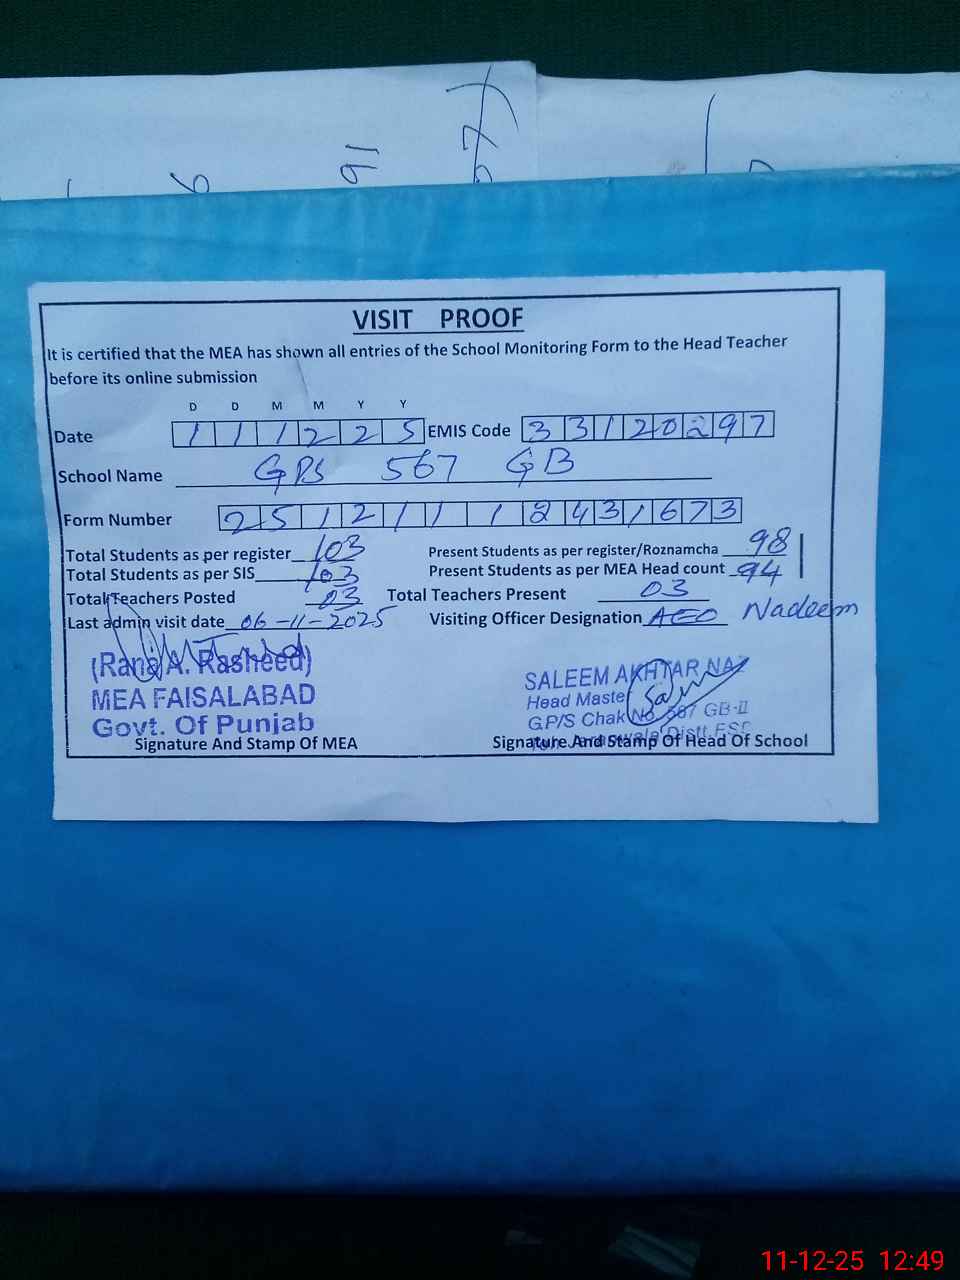 91
VISIT PROOF
It is certified that the MEA has shown all entries of the School Monitoring Form to the Head Teacher
before its online submission
D D M M Y Y
Date 1 1 1 2 2 5 EMIS Code 3 3 1 2 0 2 9 7
School Name GPS 567 GB
Form Number 2 5 1 2 1 1 1 2 4 3 1 6 7 3
Total Students as per register 103 Present Students as per register/Roznamcha 98
Total Students as per SIS 103 Present Students as per MEA Head count 94
Total Teachers Posted 03 Total Teachers Present 03
Last admin visit date 06-11-2025 Visiting Officer Designation AEO Nadeem
(Rana A. Rasheed)
MEA FAISALABAD
Govt. Of Punjab
Signature And Stamp Of MEA
SALEEM AKHTAR NAZ
Head Master
G.P/S Chak No. 567 GB-II
Distt FSD
Signature And Stamp Of Head Of School
11-12-25 12:49